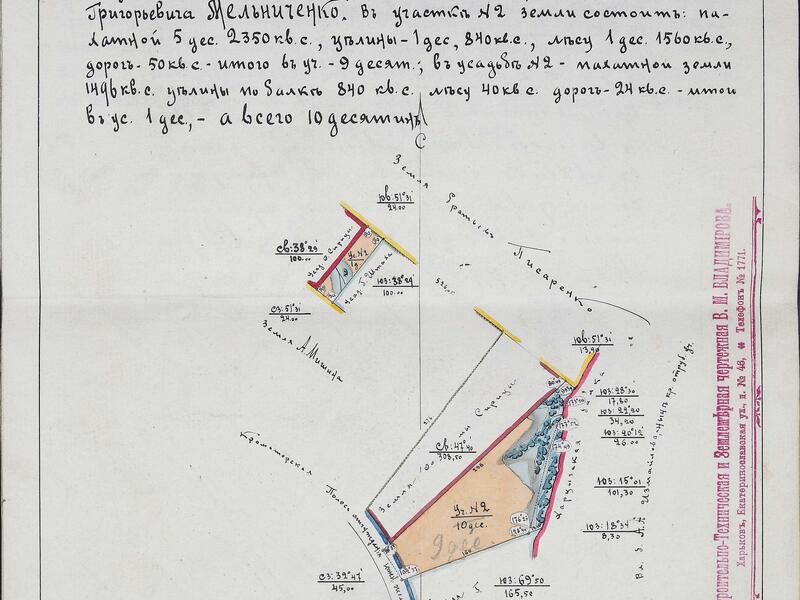 Григорьевича Мельниченко. Въ участкѣ №2 земли состоитъ: па-
хатной 5 дес. 2350 кв.с., цѣлины - 1 дес, 840 кв.с., лѣсу 1 дес. 1560 кв.с.,
дорогъ - 50 кв.с. - итого в уч. - 9 десят.; въ усадьбѣ №2 - пахатной земли
1496 кв.с. цѣлины по балкѣ 840 кв.с. лѣсу 40 кв с. дорогъ - 24 кв.с. - итого
въ ус. 1 дес., - а всего 10 десятинъ
С
Земля Братьевъ Писаренко
ЮВ:51°31'
24.00
СВ:38°29'
100.00
Усад. Сироци
Ус №2
1 д.
Усад. Г. Штаба
ЮЗ:38°29'
100.00
СЗ:51°31'
24.00
Земля А. Мишина
ЮВ:51°31'
13,90
ЮЗ:28°30'
17,80
ЮЗ:22°20'
34,20
ЮЗ:20°12'
26.00
ЮЗ:15°01'
101,30
ЮЗ:18°34'
8,30
СВ:47°40'
308,50
Земля Сироци
Уч. №2
10 дес.
9 дес.
Краматорская
Полоса отчужденія Южн. жел.
СЗ:32°47'
45,00
ЮЗ:69°50'
165,50
Вл. Измайлова, нынѣ кр. отруб. уч.
роительно-Техническая и Землемѣрная чертежная В. М. ВЛАДИМІРОВА.
Харьковъ, Екатеринославская ул., д. № 46, Телефонъ № 1771.